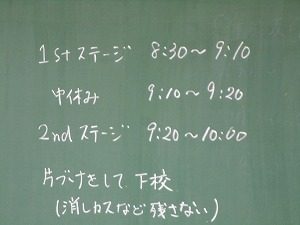 1st ステージ 8:30～9:10
中休み 9:10～9:20
2nd ステージ 9:20～10:00
片づけをして下校
(消しカスなど残さない)